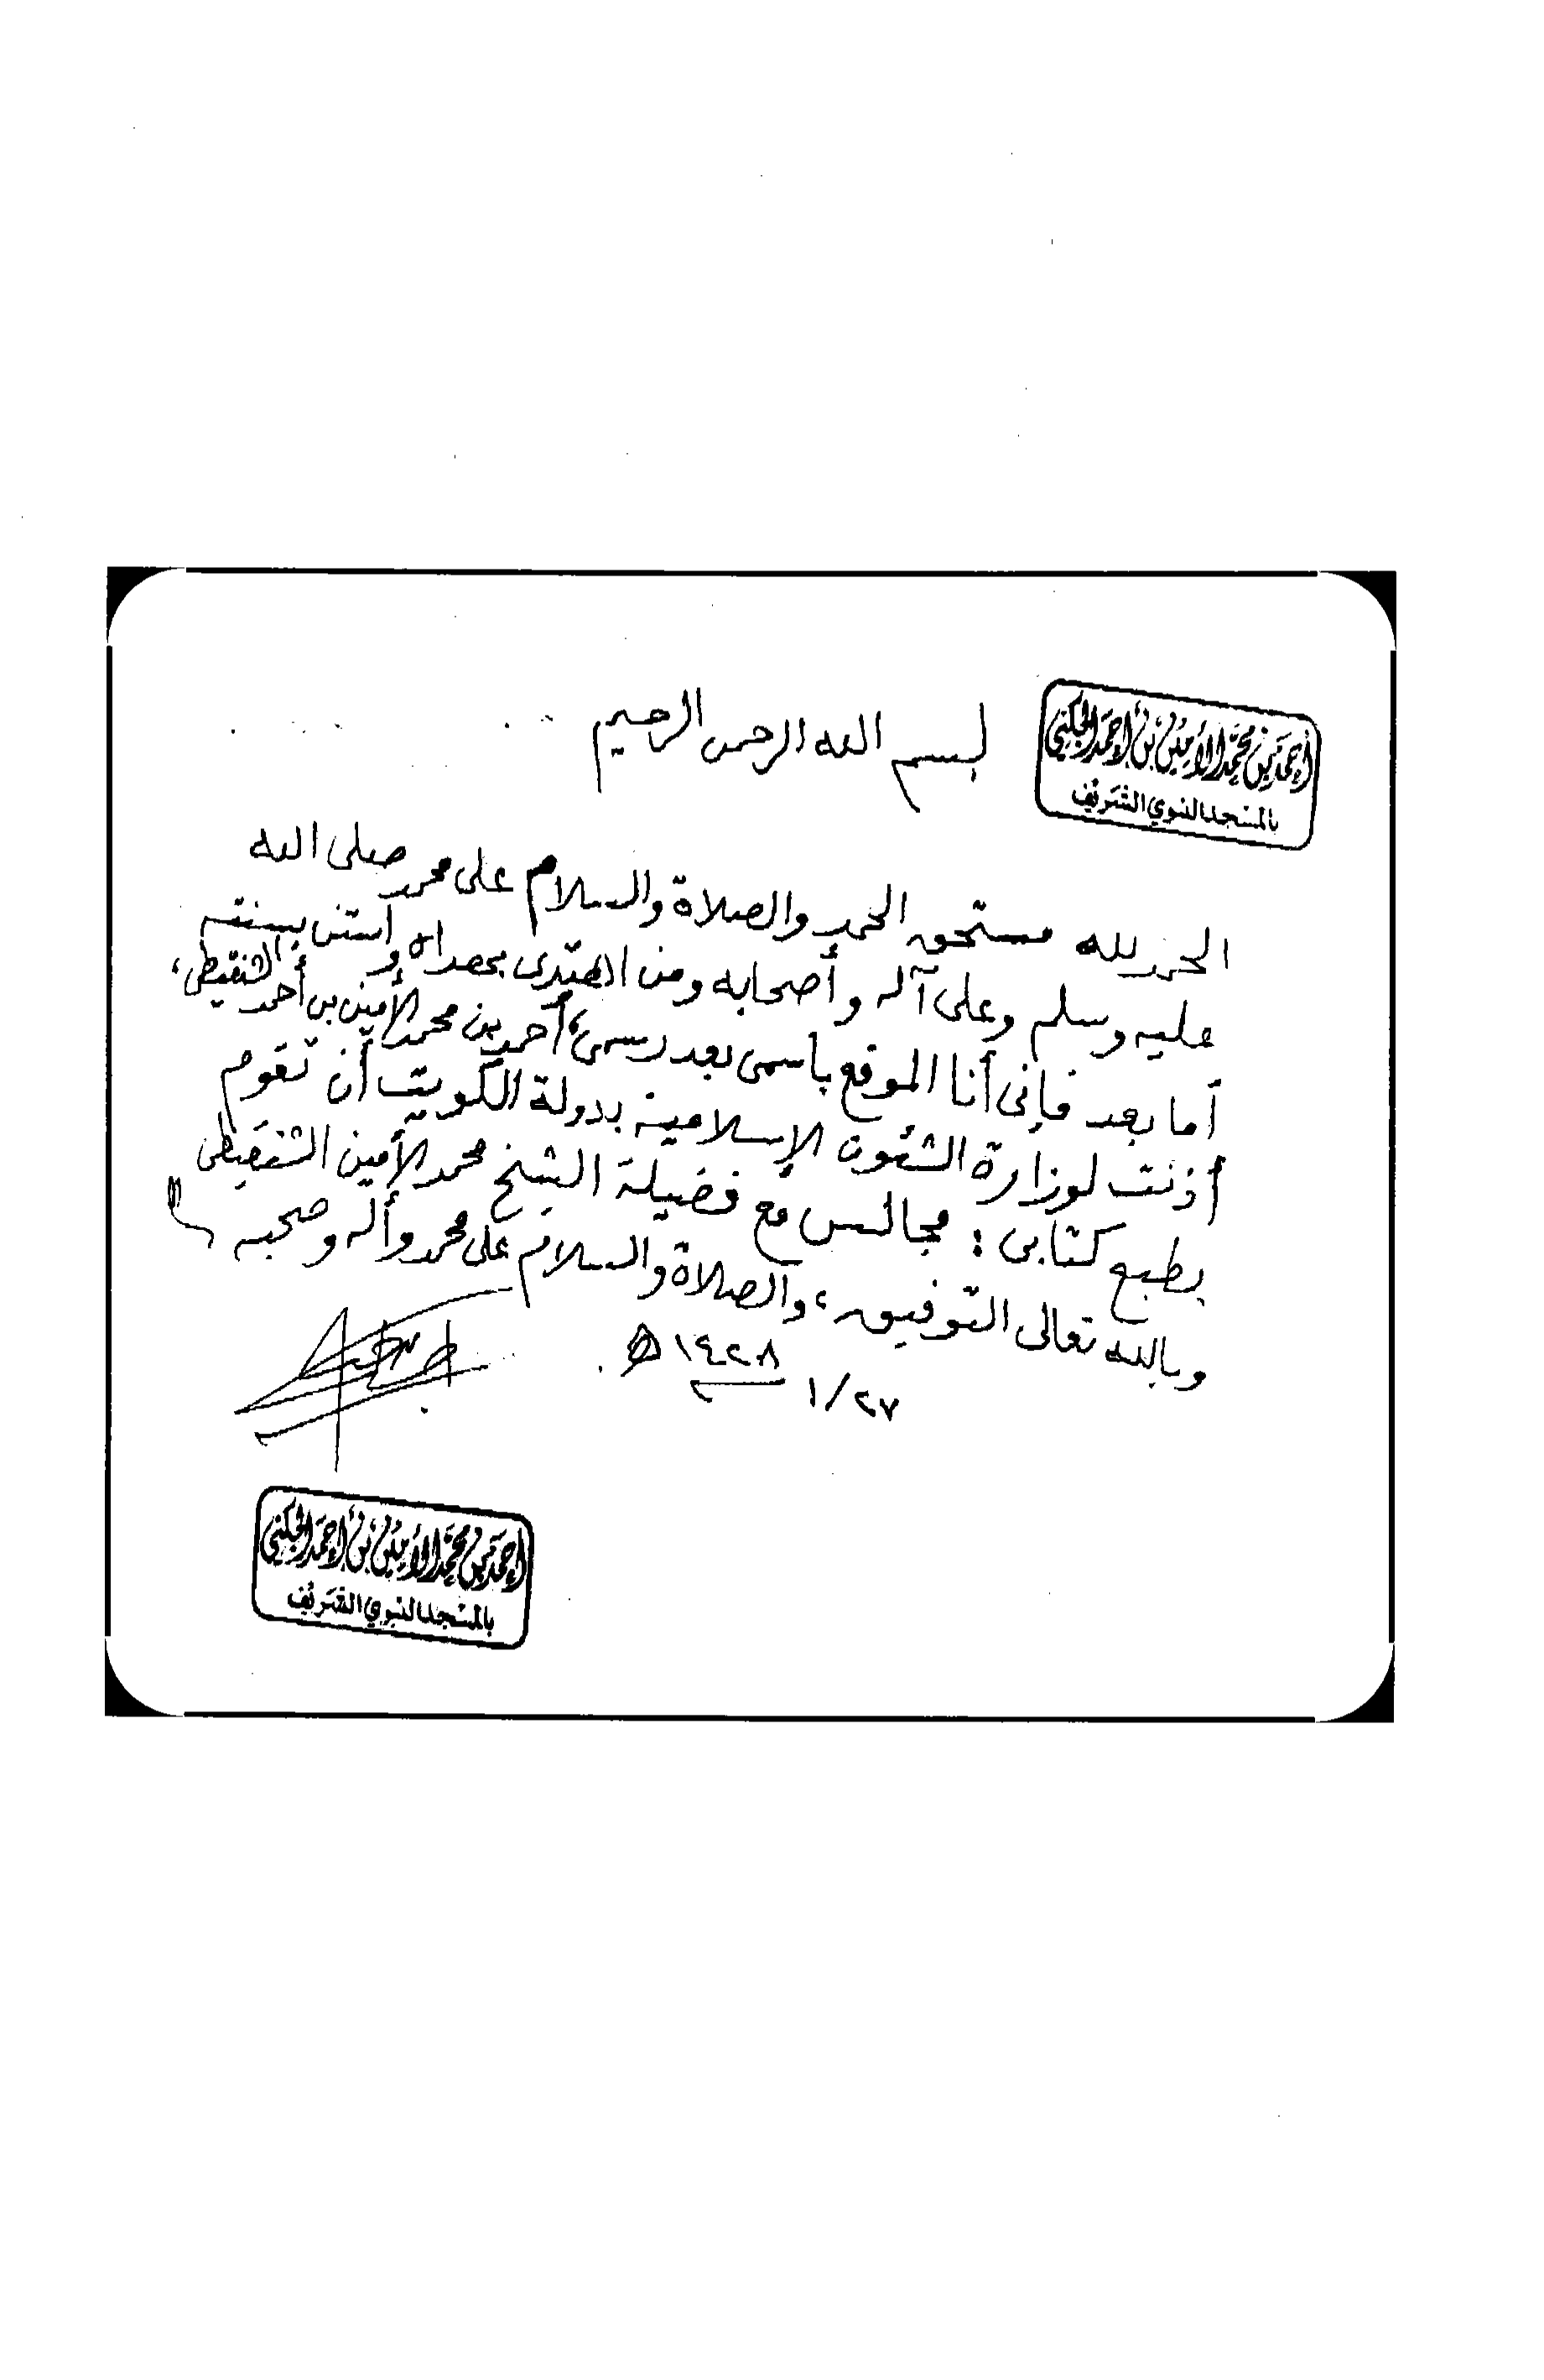 أحمد بن محمد الأمين بن أحمد الجكني
بالمسجد النبوي الشريف
بسم الله الرحمن الرحيم
الحمد لله مستحق الحمد والصلاة والسلام على محمد صلى الله
عليه وسلم وعلى آله وأصحابه ومن اهتدى بهداه واستن بسنته
أما بعد فإنى أنا الموقع باسمى بعد رسمى، أحمد بن محمد الأمين بن أحمد الشنقيطى،
أذنت لوزارة الشئون الإسلامية بدولة الكويت أن تقوم
بطبع كتابى: مجالس مع فضيلة الشيخ محمد الأمين الشنقيطى
وبالله تعالى التوفيق، والصلاة والسلام على محمد وآله وصحبه
١٤٢٨ هـ
٢٧/١
أحمد بن محمد الأمين بن أحمد الجكني
بالمسجد النبوي الشريف